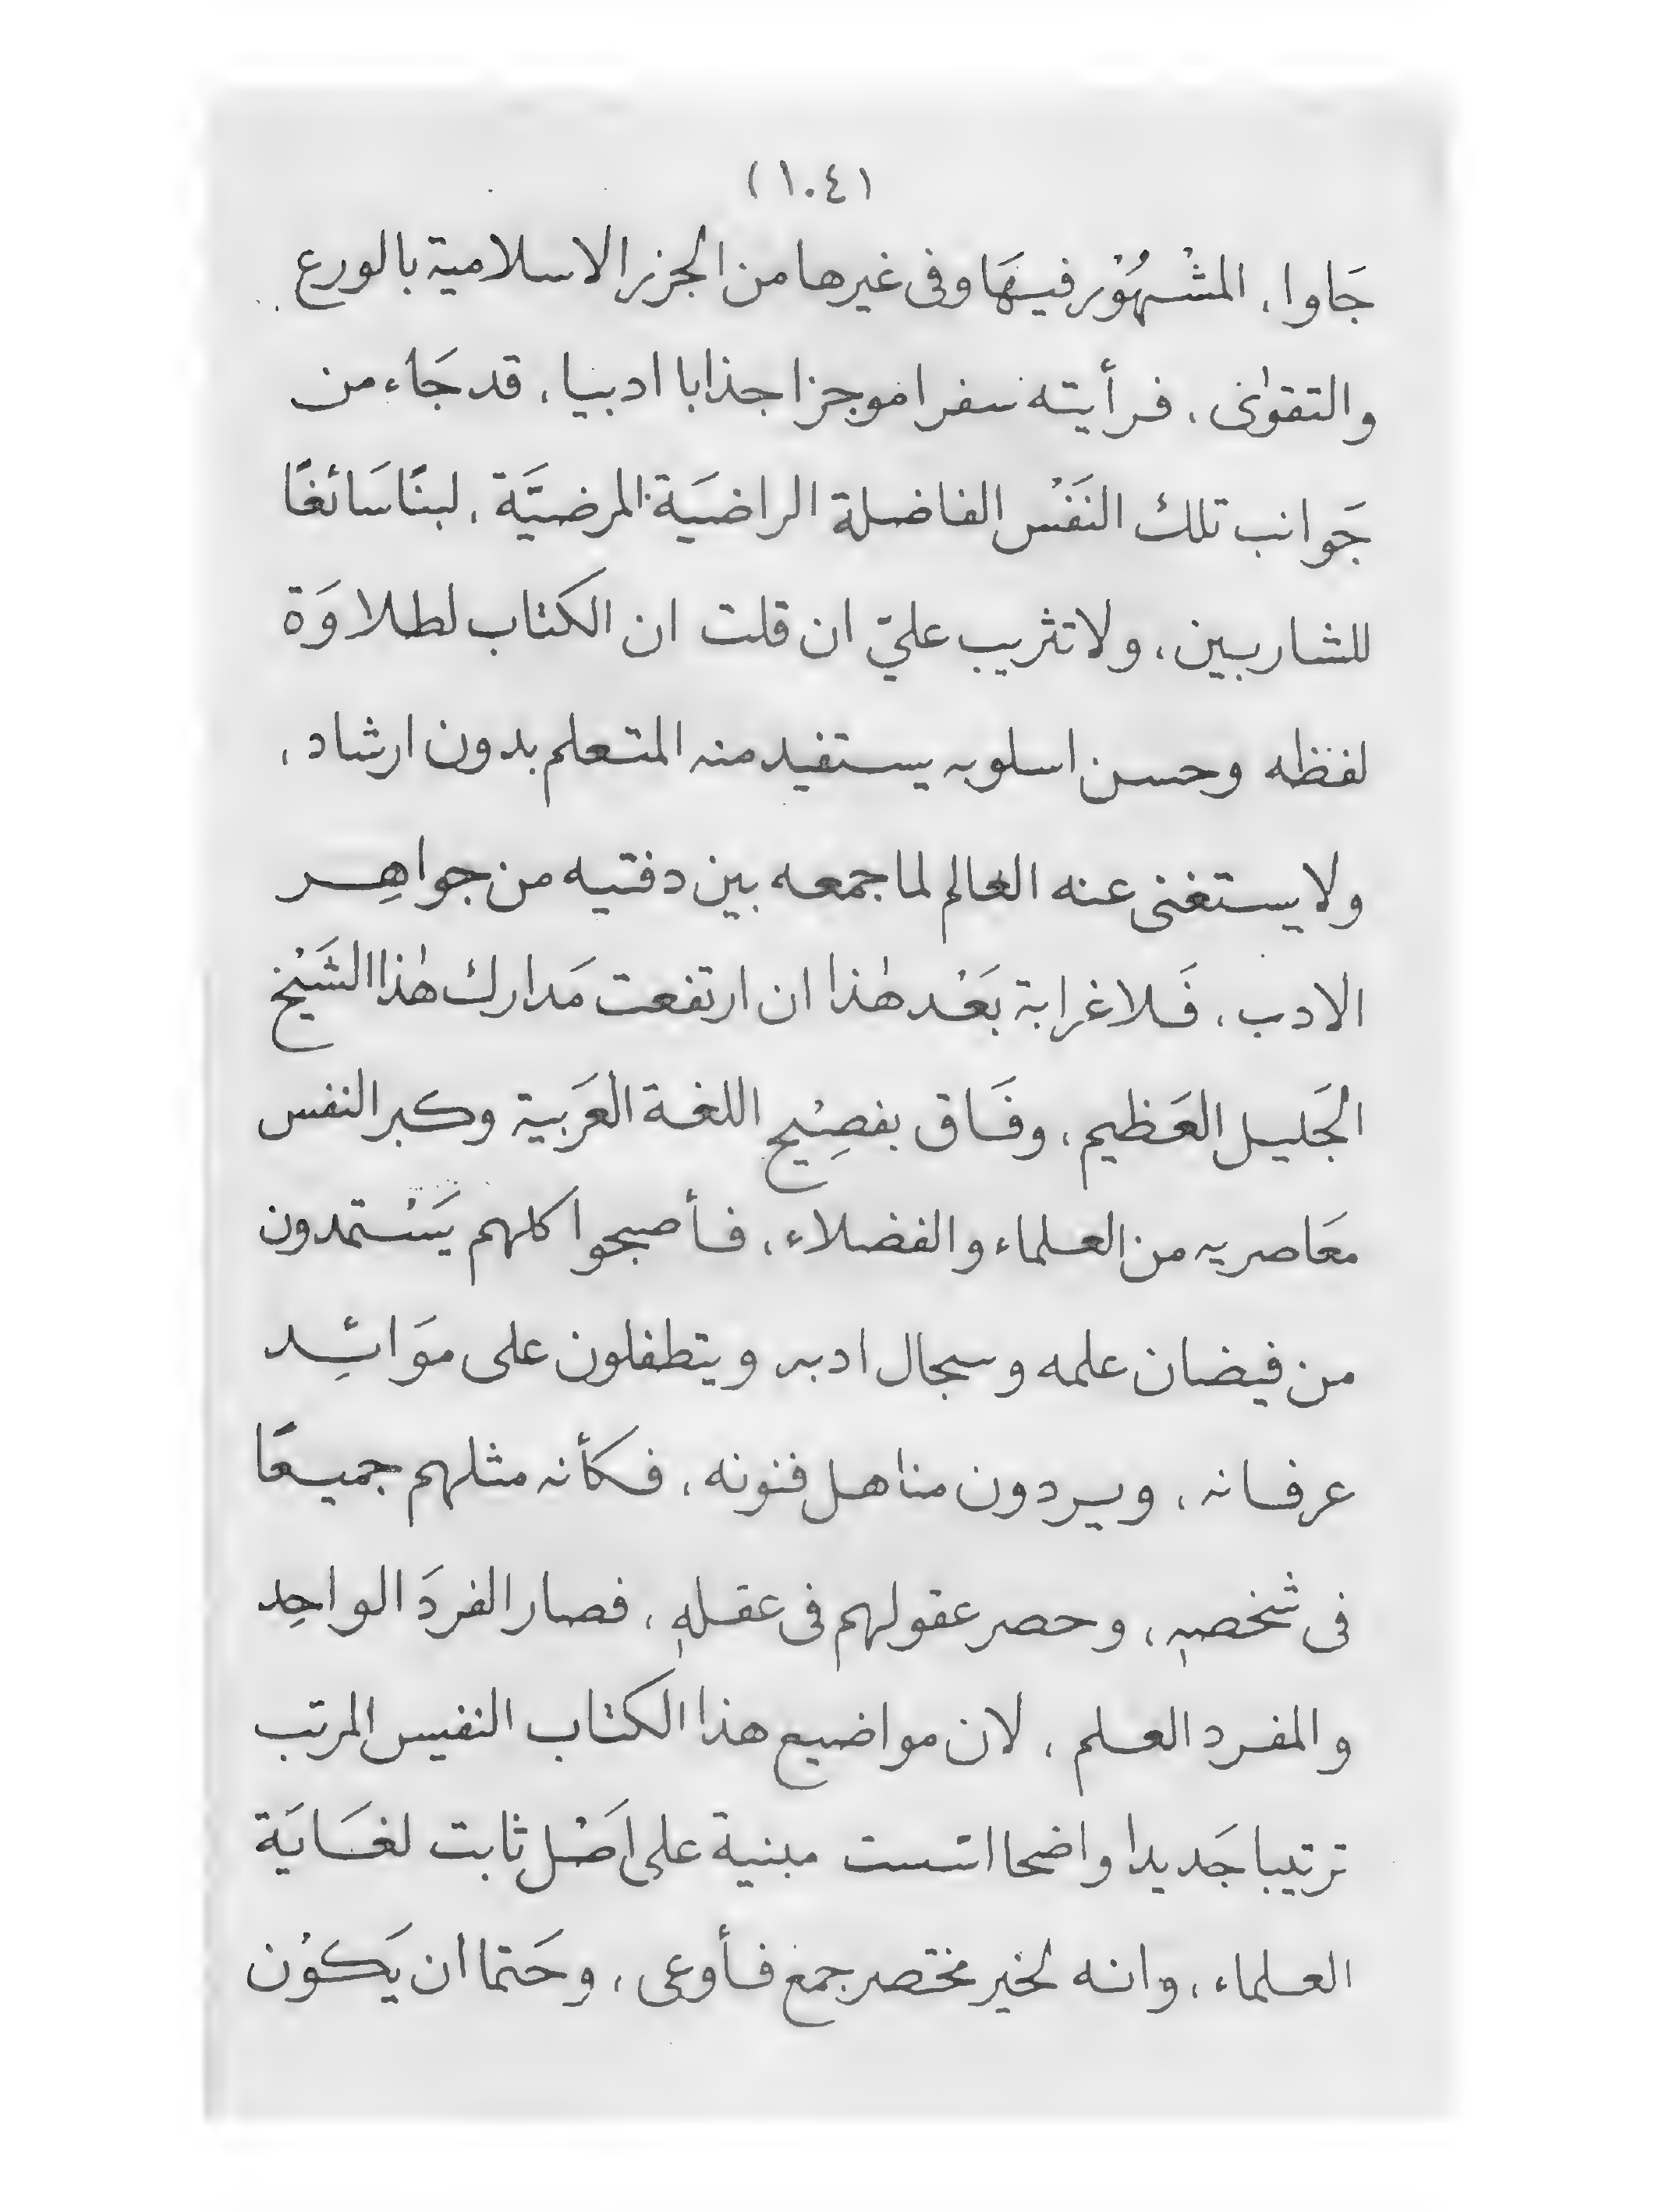 (١٠٤)
جَاوا، المشْهُوْر فيهَا وفى غيرها من الجزر الاسلامية بالورع
والتقوٰى، فرأيته سفرا موجزا جذابا ادبيا، قد جَاء من
جَوانب تلك النَفْس الفاضلة الراضيَة المرضيَّة، لبنًا سَائغًا
للشاربين، ولا تثريب عليّ ان قلت ان الكتاب لطلاوَة
لفظه وحسن اسلوبه يستفيد منه المتعلم بدون ارشاد،
ولا يستغنى عنه العالم لما جمعه بين دفتيه من جواهِر
الادب، فَلا غرابة بَعْد هٰذا ان ارتفعت مَدارك هٰذا الشَيْخ
الجَليل العَظيم، وفَاق بفصِيْح اللغة العَربية وكبر النفس
معَاصريه من العلماء والفضلاء، فأصبحوا كلهم يَسْتمدون
من فيضان علمه وسجال ادبه ويتطفلون على موَائِد
عرفانه، ويردون مناهل فنونه، فكأنه مثلهم جميعًا
فى شخصهٖ، وحصر عقولهم فى عقلهٖ، فصار الفردَ الواحِد
والمفرد العلم، لان مواضيع هذا الكتاب النفيس المرتب
ترتيبا جَديدا واضحا اسست مبنية على اَصْل ثابت لغَايَة
العلماء، وانه لخير مختصر جمع فأوعى، وحَتما ان يَكوْن